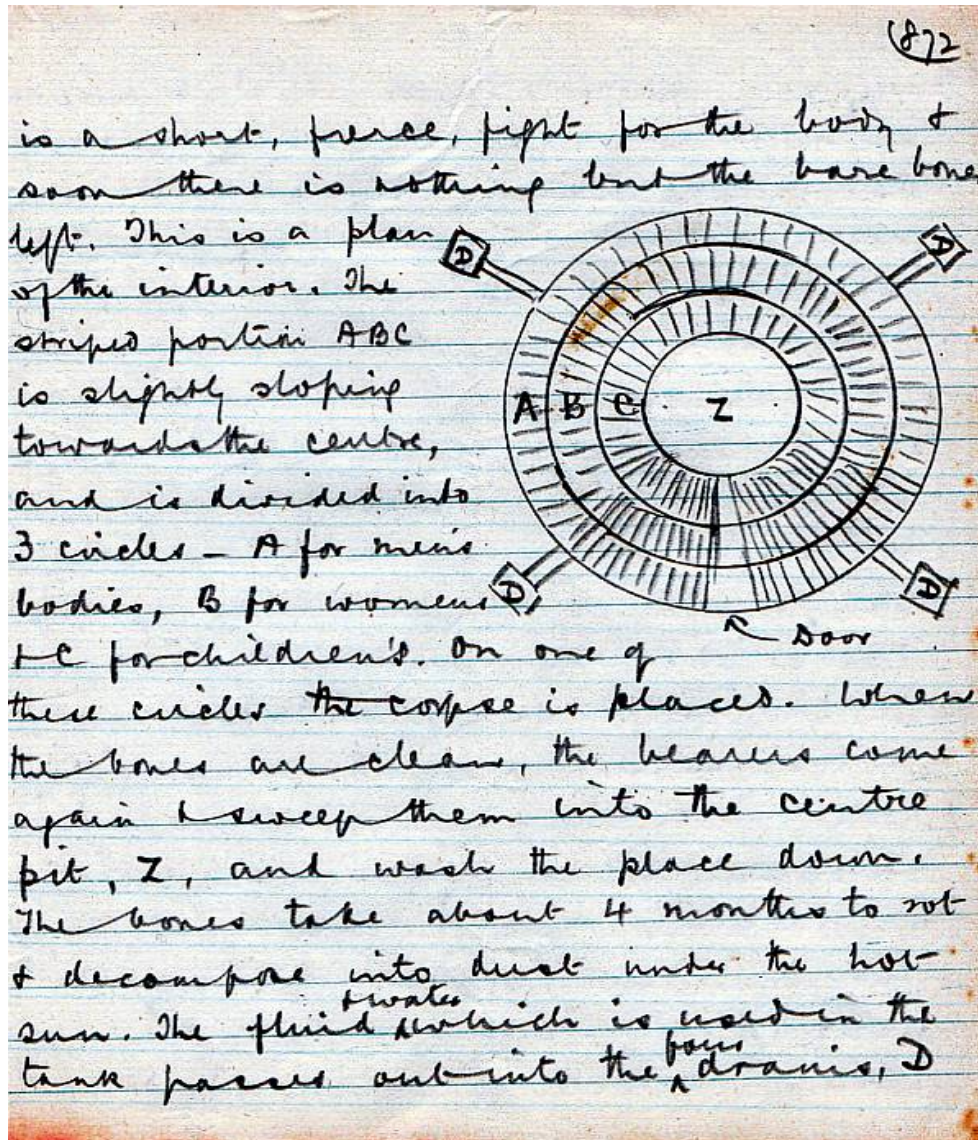 1872
is a short, fierce, fight for the body &
soon there is nothing but the bare bone
left. This is a plan
of the interior. The
striped portion ABC
is slightly sloping
towards the centre,
and is divided into
3 circles - A for men's
bodies, B for womens
& C for children's. On one of
these circles the corpse is placed. When
the bones are clean, the bearers come
again & sweep them into the centre
pit, Z, and wash the place down.
The bones take about 4 months to rot
& decompose into dust under the hot
sun. The fluid & water which is used in the
tank passes out into the four drains, D
D
D
A B C Z
D
D
Door